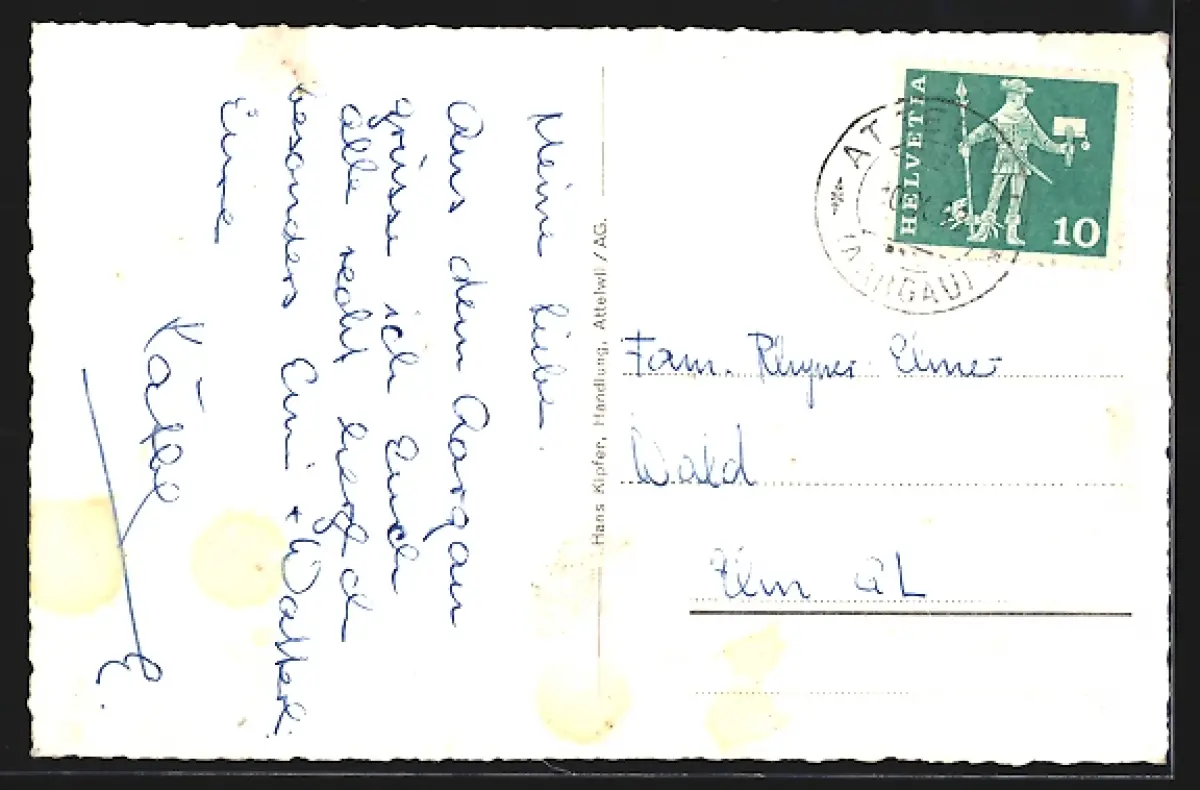 Meine Liebe.
Aus dem Aargau
grüsse ich Euch
alle recht herzlich
besonders Emi + Walter.
Eure
Käthi
E.
Hans Kipfer, Handlung, Attelwil / AG.
HELVETIA
10
(AARGAU)
Fam. Rhyner-Elmer
Wald
Elm GL